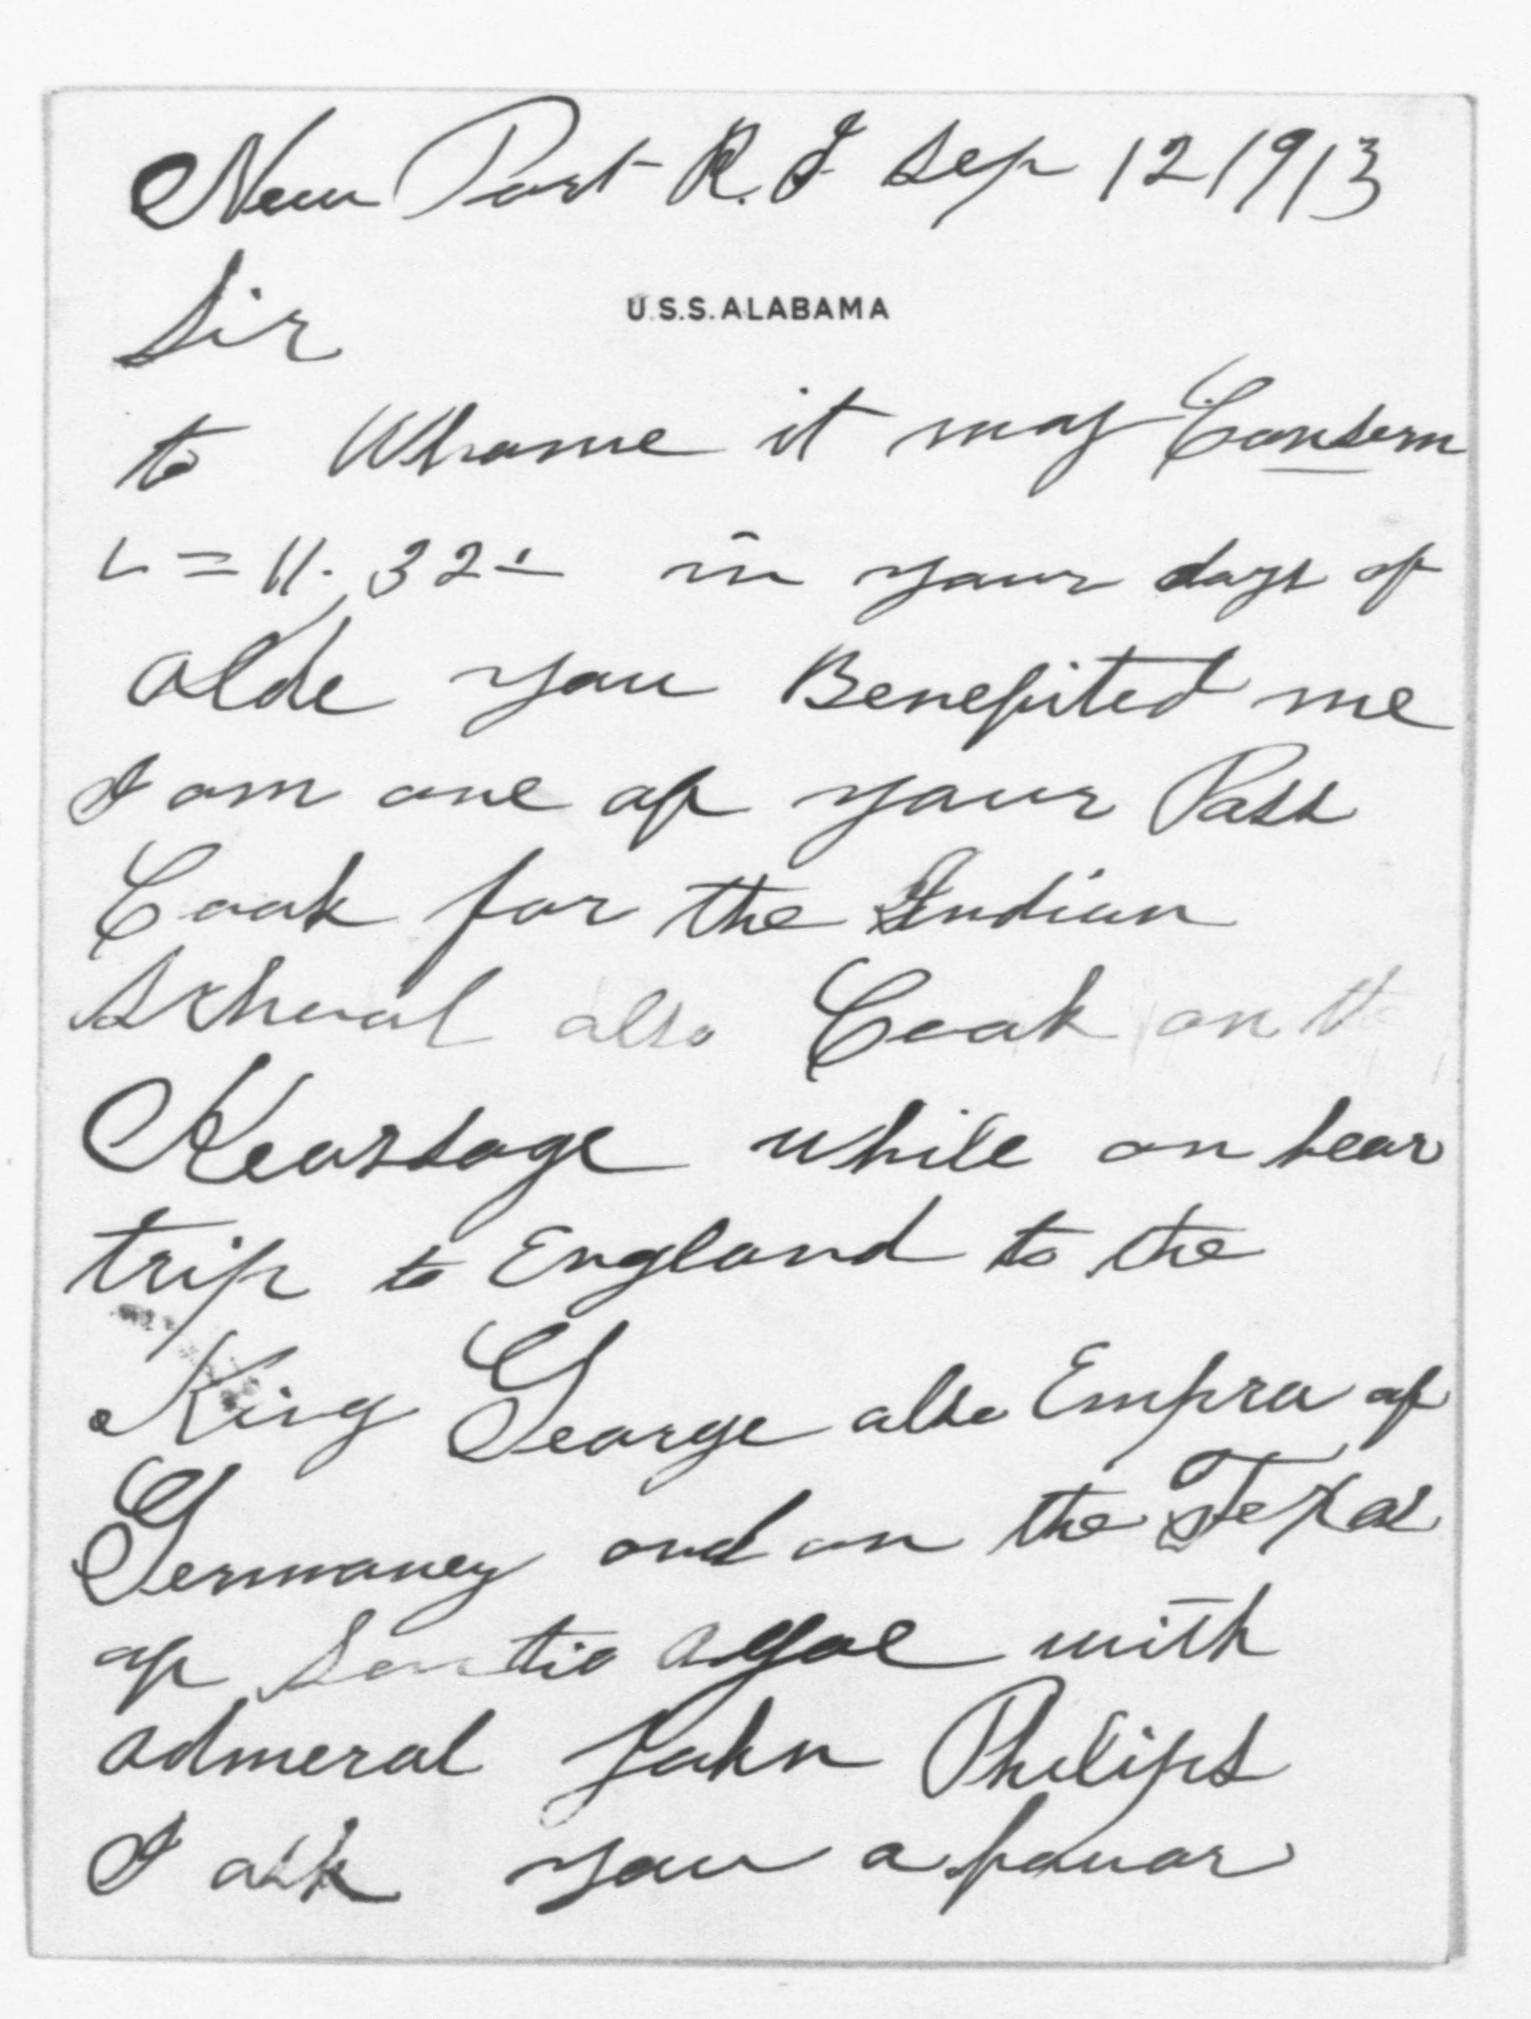 New Port R.I Sep 12 1913
U.S.S. ALABAMA
Sir
to Whome it may Consern
L = 11. 32 ÷ in your days of
olde you Benefited me
I am one of your Pass
Cook for the Indian
School also Cook on the
Kearsage while on hear
trip to England to the
King George also Empra of
Germaney and on the Texas
of Santio Agoe with
Admeral John Philips
I ask you a favor